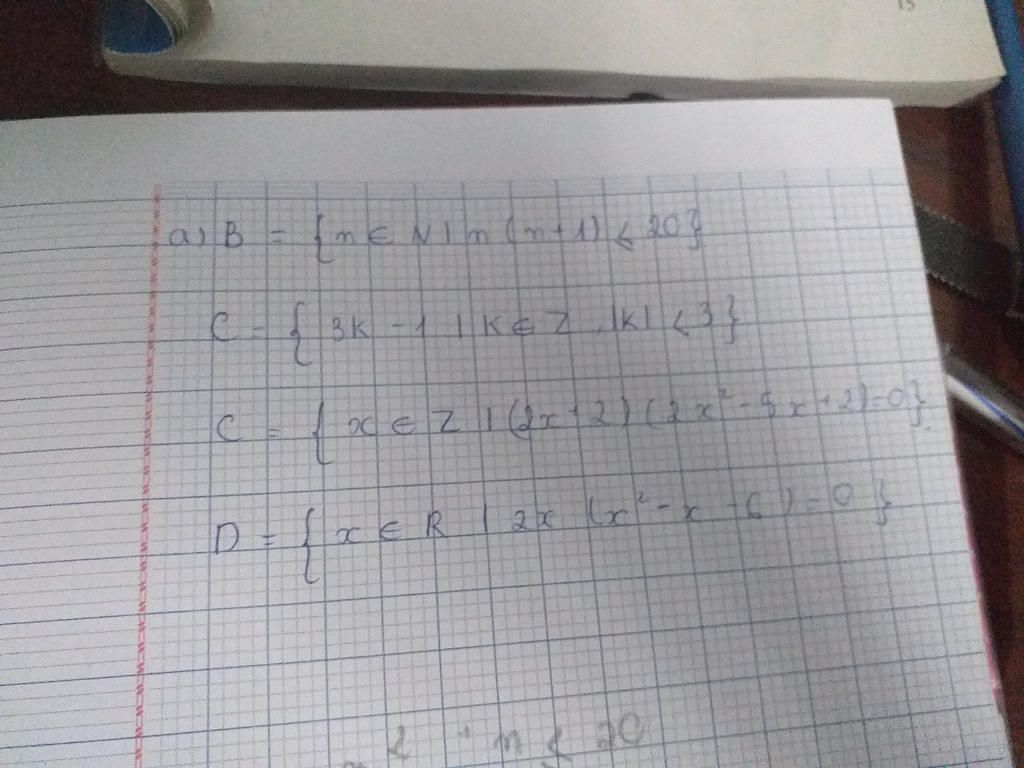 15
a) B = {n ∈ N | n (n+1) ⩽ 20}
C = { 3k - 1 | k ∈ Z , |k| < 3 }
C = { x ∈ Z | (2x + 2) (2x² - 5x + 2) = 0}.
D = { x ∈ R | 2x (x² - x - 6) = 0 }
n ⩽ 20